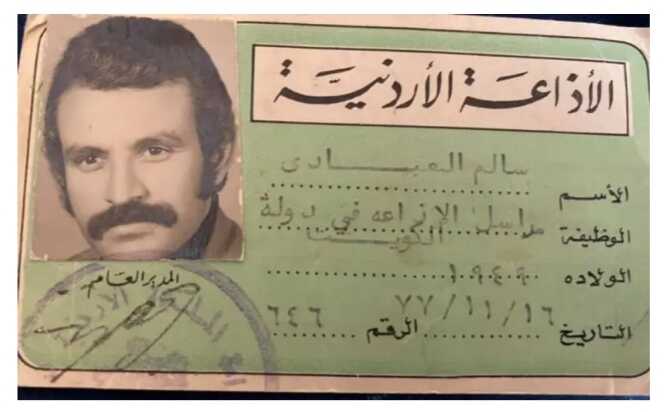 الأذاعة الأردنية
الأسم سالم العبادي
الوظيفة مراسل الإذاعه في دولة
الكويت
الولاده ١٩٤٩
التاريخ ٧٧/١١/١٦ الرقم ٦٤٦
المدير العام